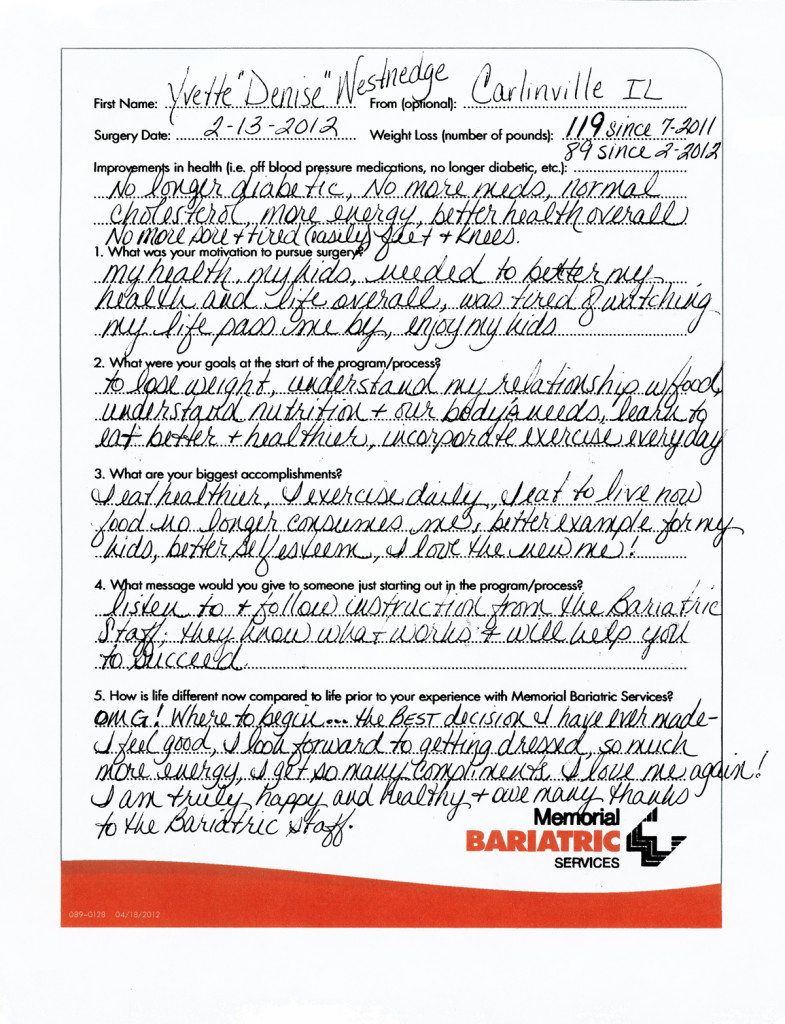 First Name: Yvette "Denise" Westnedge From (optional): Carlinville IL
Surgery Date: 2-13-2012 Weight Loss (number of pounds): 119 since 7-2011
89 since 2-2012
Improvements in health (i.e. off blood pressure medications, no longer diabetic, etc.):
No longer diabetic, No more meds, normal
cholesterol, more energy, better health overall
No more sore + tired (easily) feet + knees.
1. What was your motivation to pursue surgery?
my health, my kids, needed to better my
health and life overall, was tired of watching
my life pass me by, enjoy my kids
2. What were your goals at the start of the program/process?
to lose weight, understand my relationship w/food,
understand nutrition + our body's needs, learn to
eat better + healthier, incorporate exercise everyday
3. What are your biggest accomplishments?
I eat healthier, I exercise daily, I eat to live now
food no longer consumes me, better example for my
kids, better self esteem, I love the new me!
4. What message would you give to someone just starting out in the program/process?
listen to + follow instruction from the Bariatric
Staff, they know what works + will help you
to succeed.
5. How is life different now compared to life prior to your experience with Memorial Bariatric Services?
OMG! Where to begin... the BEST decision I have ever made-
I feel good, I look forward to getting dressed, so much
more energy, I get so many compliments I love me again!
I am truly happy and healthy + owe many thanks
to the Bariatric staff.
Memorial
BARIATRIC
SERVICES
089-0128 04/18/2012